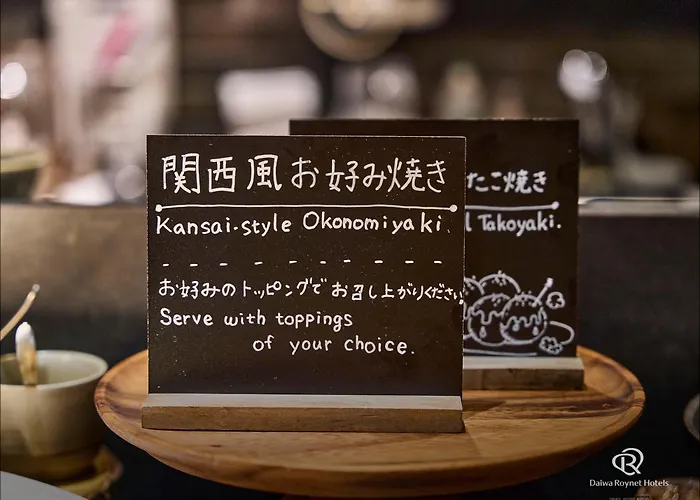 関西風お好み焼き
Kansai-style Okonomiyaki.
お好みのトッピングでお召し上がりください
Serve with toppings
of your choice.
たこ焼き
l Takoyaki.
Daiwa Roynet Hotels